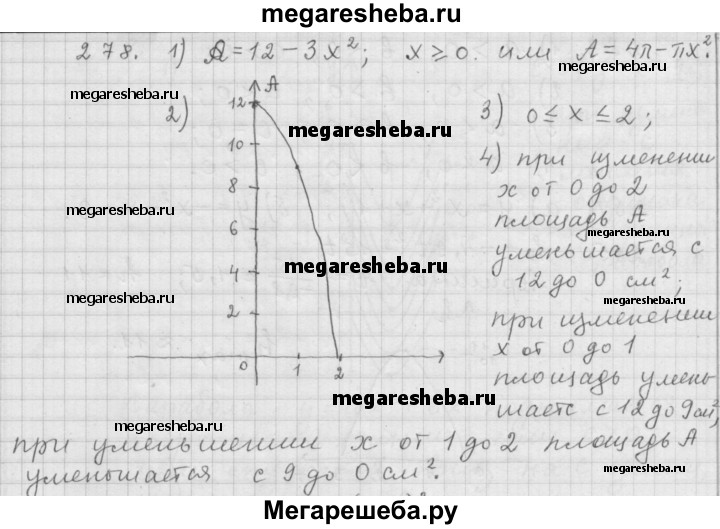 megaresheba.ru
278. 1) A=12-3x²; x≥0. или A=4π-πx².
megaresheba.ru
megaresheba.ru
2)
A
12
10
8
6
4
2
0
1
2
megaresheba.ru
megaresheba.ru
megaresheba.ru
megaresheba.ru
3) 0≤x≤2;
4) при изменении
x от 0 до 2
площадь A
megaresheba.ru
уменьшается с
12 до 0 см²;
megaresheba.ru
при изменении
x от 0 до 1
площадь умень
шаетс с 12 до 9см²,
megaresheba.ru
megaresheba.ru
при уменьшении x от 1 до 2 площадь A
уменьшается с 9 до 0 см².
megaresheba.ru
Мегарешеба.ру